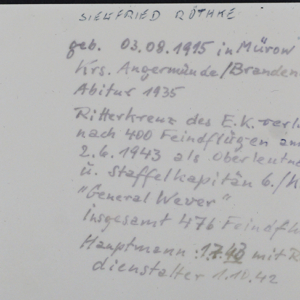 SIEGFRIED RÖTHKE
geb. 03.08.1915 in Mürow
Krs. Angermünde/Branden
Abitur 1935
Ritterkreuz des E.K. verl
nach 400 Feindflügen am
2.6.1943 als Oberleutna
u. Staffelkapitän 6./K
"General Wever"
insgesamt 476 Feindfl
Hauptmann 1.7.43 mit R
dienstalter 1.10.42